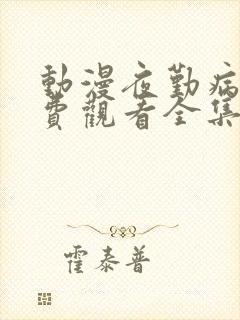 動漫夜勤病
費觀看全集
霍泰普